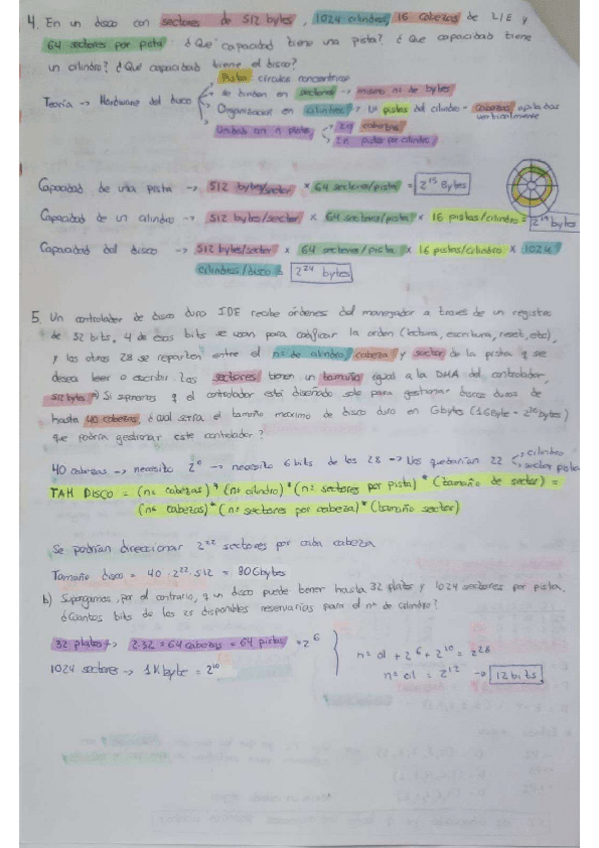 4. En un disco con sectores de 512 bytes, 1024 cilindros, 16 cabezas de L/E y
64 sectores por pista ¿Que capacidad tiene una pista? ¿Que capacidad tiene
un cilindro? ¿Qué capacidad tiene el disco?
Pistas: círculos concéntricos
se dividen en sectores -> mismo nº de bytes
Teoría -> Hardware del disco
Organización en cilindros -> Nº pistas del cilindro = cabezas apiladas verticalmente
Unidad con n platos
2n cabezas
2n pistas por cilindro
Capacidad de una pista -> 512 bytes/sector * 64 sectores/pista = 2^15 Bytes
Capacidad de un cilindro -> 512 bytes/sector * 64 sectores/pista * 16 pistas/cilindro = 2^19 bytes
Capacidad del disco -> 512 bytes/sector * 64 sectores/pista * 16 pistas/cilindro * 1024
cilindros/disco = 2^24 bytes
5. Un controlador de disco duro IDE recibe órdenes del manejador a traves de un registro
de 32 bits. 4 de esos bits se usan para codificar la orden (lectura, escritura, reset, etc),
y los otros 28 se reparten entre el nº de cilindro, cabeza y sector de la pista q se
desea leer o escribir. Los sectores tienen un tamaño igual a la DMA del controlador,
512 bytes. a) Si suponemos q el controlador está diseñado solo para gestionar discos duros de
hasta 40 cabezas ¿cual sería el tamaño máximo de disco duro en Gbytes (1GByte = 2^30 bytes)
que podría gestionar este controlador?
40 cabezas -> necesito 2^6 -> necesito 6 bits de los 28 -> Nos quedarían 22
cilindro
sector pista
TAM DISCO = (nº cabezas) * (nº cilindro) * (nº sectores por pista) * (tamaño de sector) =
(nº cabezas) * (nº sectores por cabeza) * (tamaño sector)
Se podrían direccionar 2^22 sectores por cada cabeza
Tamaño disco = 40 · 2^22 · 512 = 80 Gbytes
b) Supongamos, por el contrario, q un disco puede tener hasta 32 platos y 1024 sectores por pista.
¿Cuántos bits de los 28 disponibles reservarías para el nº de cilindro?
32 platos -> 2·32 = 64 cabezas = 64 pistas -> 2^6
1024 sectores -> 1Kbyte = 2^10
nº cil * 2^6 * 2^10 = 2^28
nº cil = 2^12 -> 12 bits